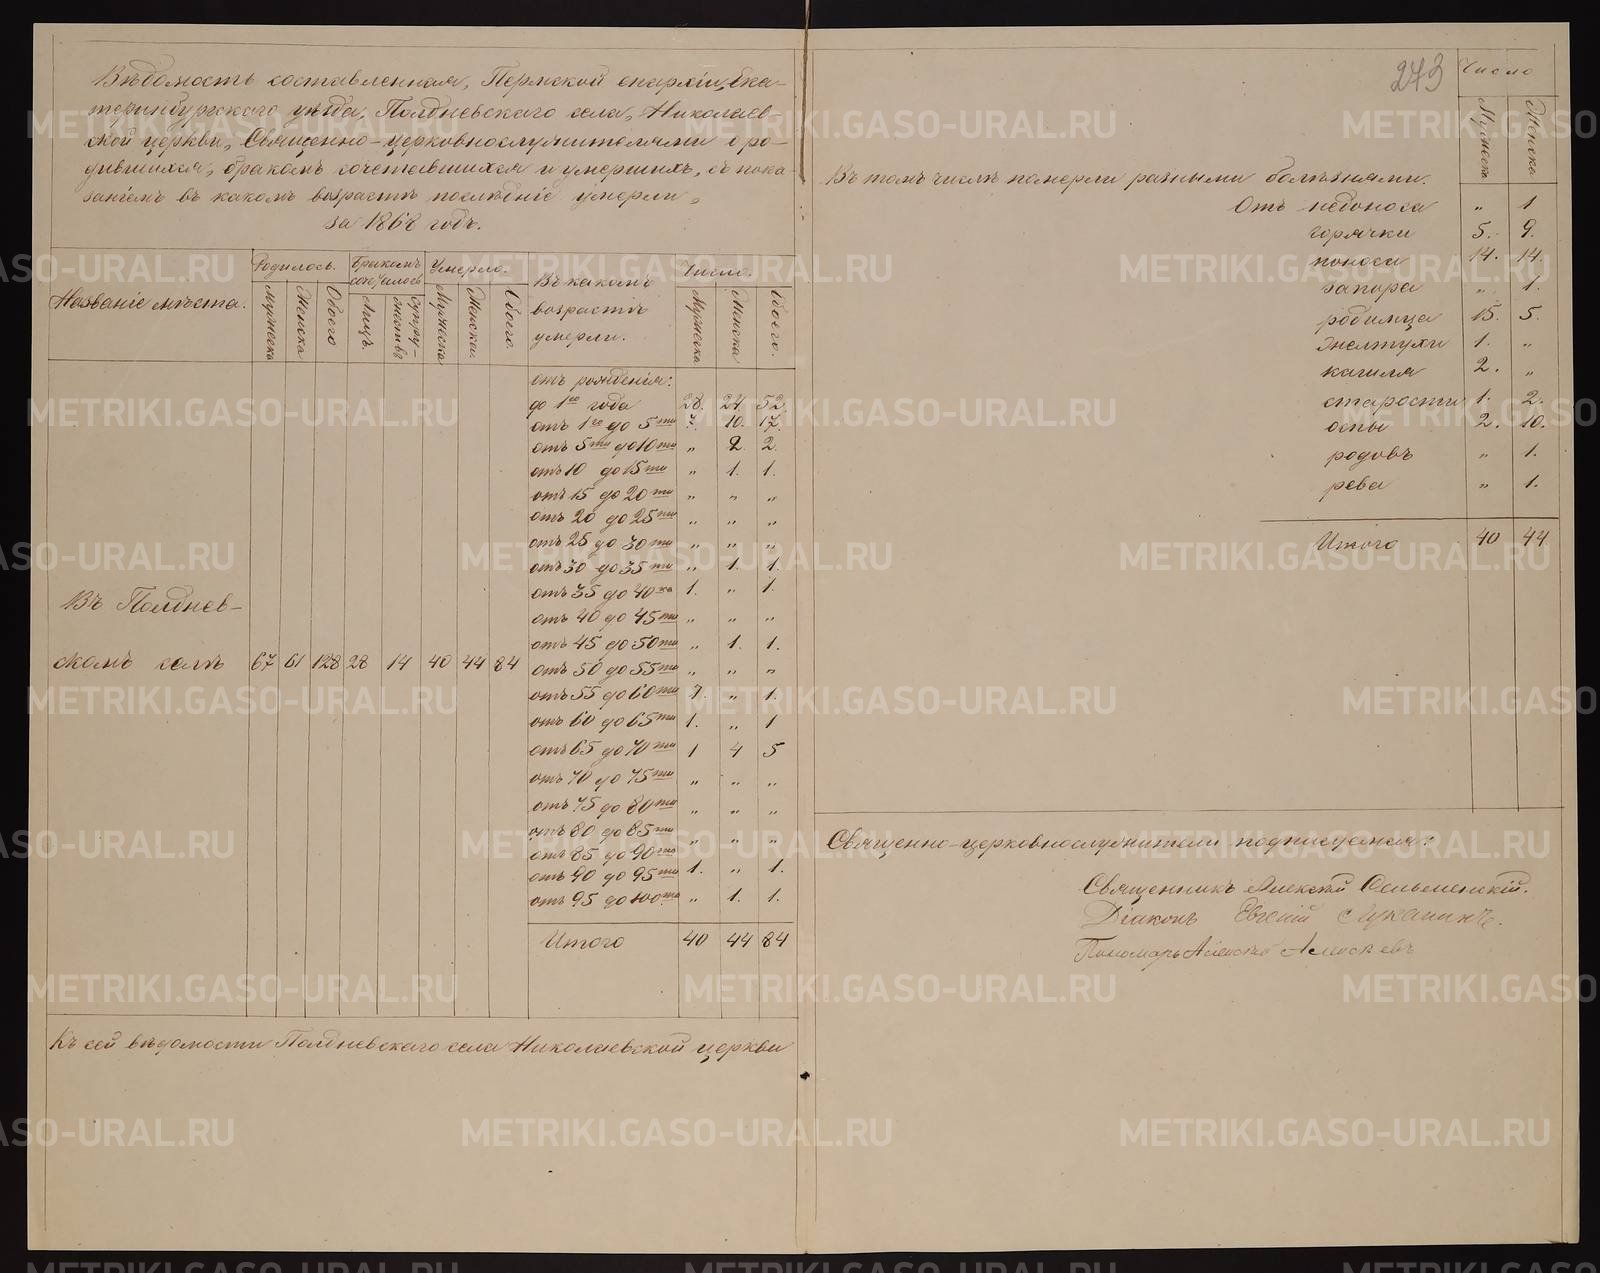 Вѣдомость составленная, Пермской епархіи, Ека-
теринбургскаго уѣзда, Полдневскаго села, Николаев-
ской церкви, Священно-церковнослужителями о ро-
дившихся, бракомъ сочетавшихся и умершихъ, съ пока-
заніемъ въ какомъ возрастѣ послѣдніе умерли,
за 1868 годъ.
Названіе мѣста.
Родилось.
Мужеска
Женска
Обоего
Бракомъ
сочеталось
Лицъ.
Супру-
жествъ
Умерло.
Мужеска
Женска.
Обоего.
Въ какомъ
возрастѣ
умерли.
Число.
Мужеска
Женска
Обоего.
Въ Полднев-
скомъ селѣ 67 61 128 28 14 40 44 84
отъ рожденія:
до 1го года 28. 24. 52.
отъ 1го до 5ти 7. 10. 17.
отъ 5ти до 10ти „ 2. 2.
отъ 10 до 15ти „ 1. 1.
отъ 15 до 20ти „ „ „
отъ 20 до 25ти „ „ „
отъ 25 до 30ти „ „ „
отъ 30 до 35ти „ 1. 1.
отъ 35 до 40ка 1. „ 1.
отъ 40 до 45ти „ „ „
отъ 45 до 50ти „ 1. 1.
отъ 50 до 55ти „ „ „
отъ 55 до 60ти 1. „ 1.
отъ 60 до 65ти 1. „ 1
отъ 65 до 70ти 1 4 5
отъ 70 до 75ти „ „ „
отъ 75 до 80ти „ „ „
отъ 80 до 85ти „ „ „
отъ 85 до 90то
отъ 90 до 95ти 1. „ 1.
отъ 95 до 100та „ 1. 1.
Итого 40 44 84
Къ сей вѣдомости Полдневскаго села Николаевской церкви
273
Число
Мужеска
Женска
Въ томъ числѣ померли разными болѣзнями.
Отъ недоноса „ 1
горячки 5. 9.
поноса 14. 14.
запора „ 1.
родимца 15. 5.
желтухи 1. „
кашля 2. „
старости 1. 2.
оспы 2. 10.
родовъ „ 1.
рева „ 1.
Итого 40 44
Священно-церковнослужители подписуемся:
Священникъ Алексѣй
Діаконъ Евгеній Луканинъ.
Пономарь Алексѣй
METRIKI.GASO-URAL.RU